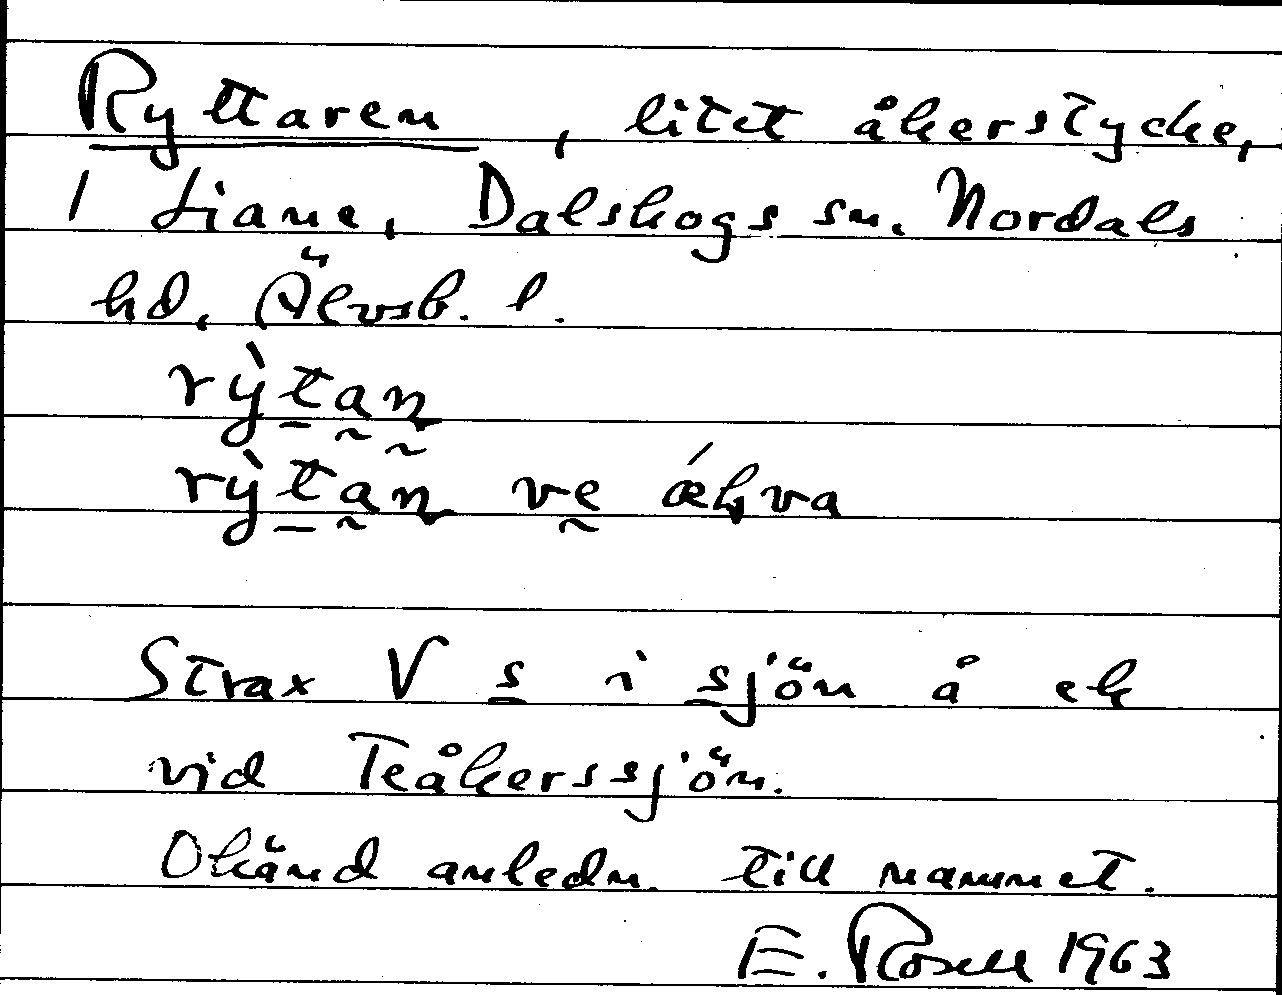 Ryttaren, litet åkerstycke,
1 Liane, Dalskogs sn. Nordals
hd, Älvsb. l.
rỳtan
rỳtan ve
Strax V s i sjön å ek
vid Teåkerssjön.
Okänd anledn. till namnet.
E. Rosell 1963